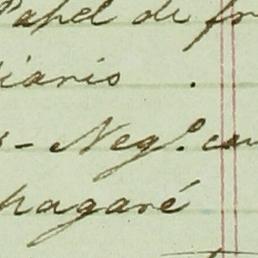 Papel de fr
diario .
- Neg.º cu
pagaré